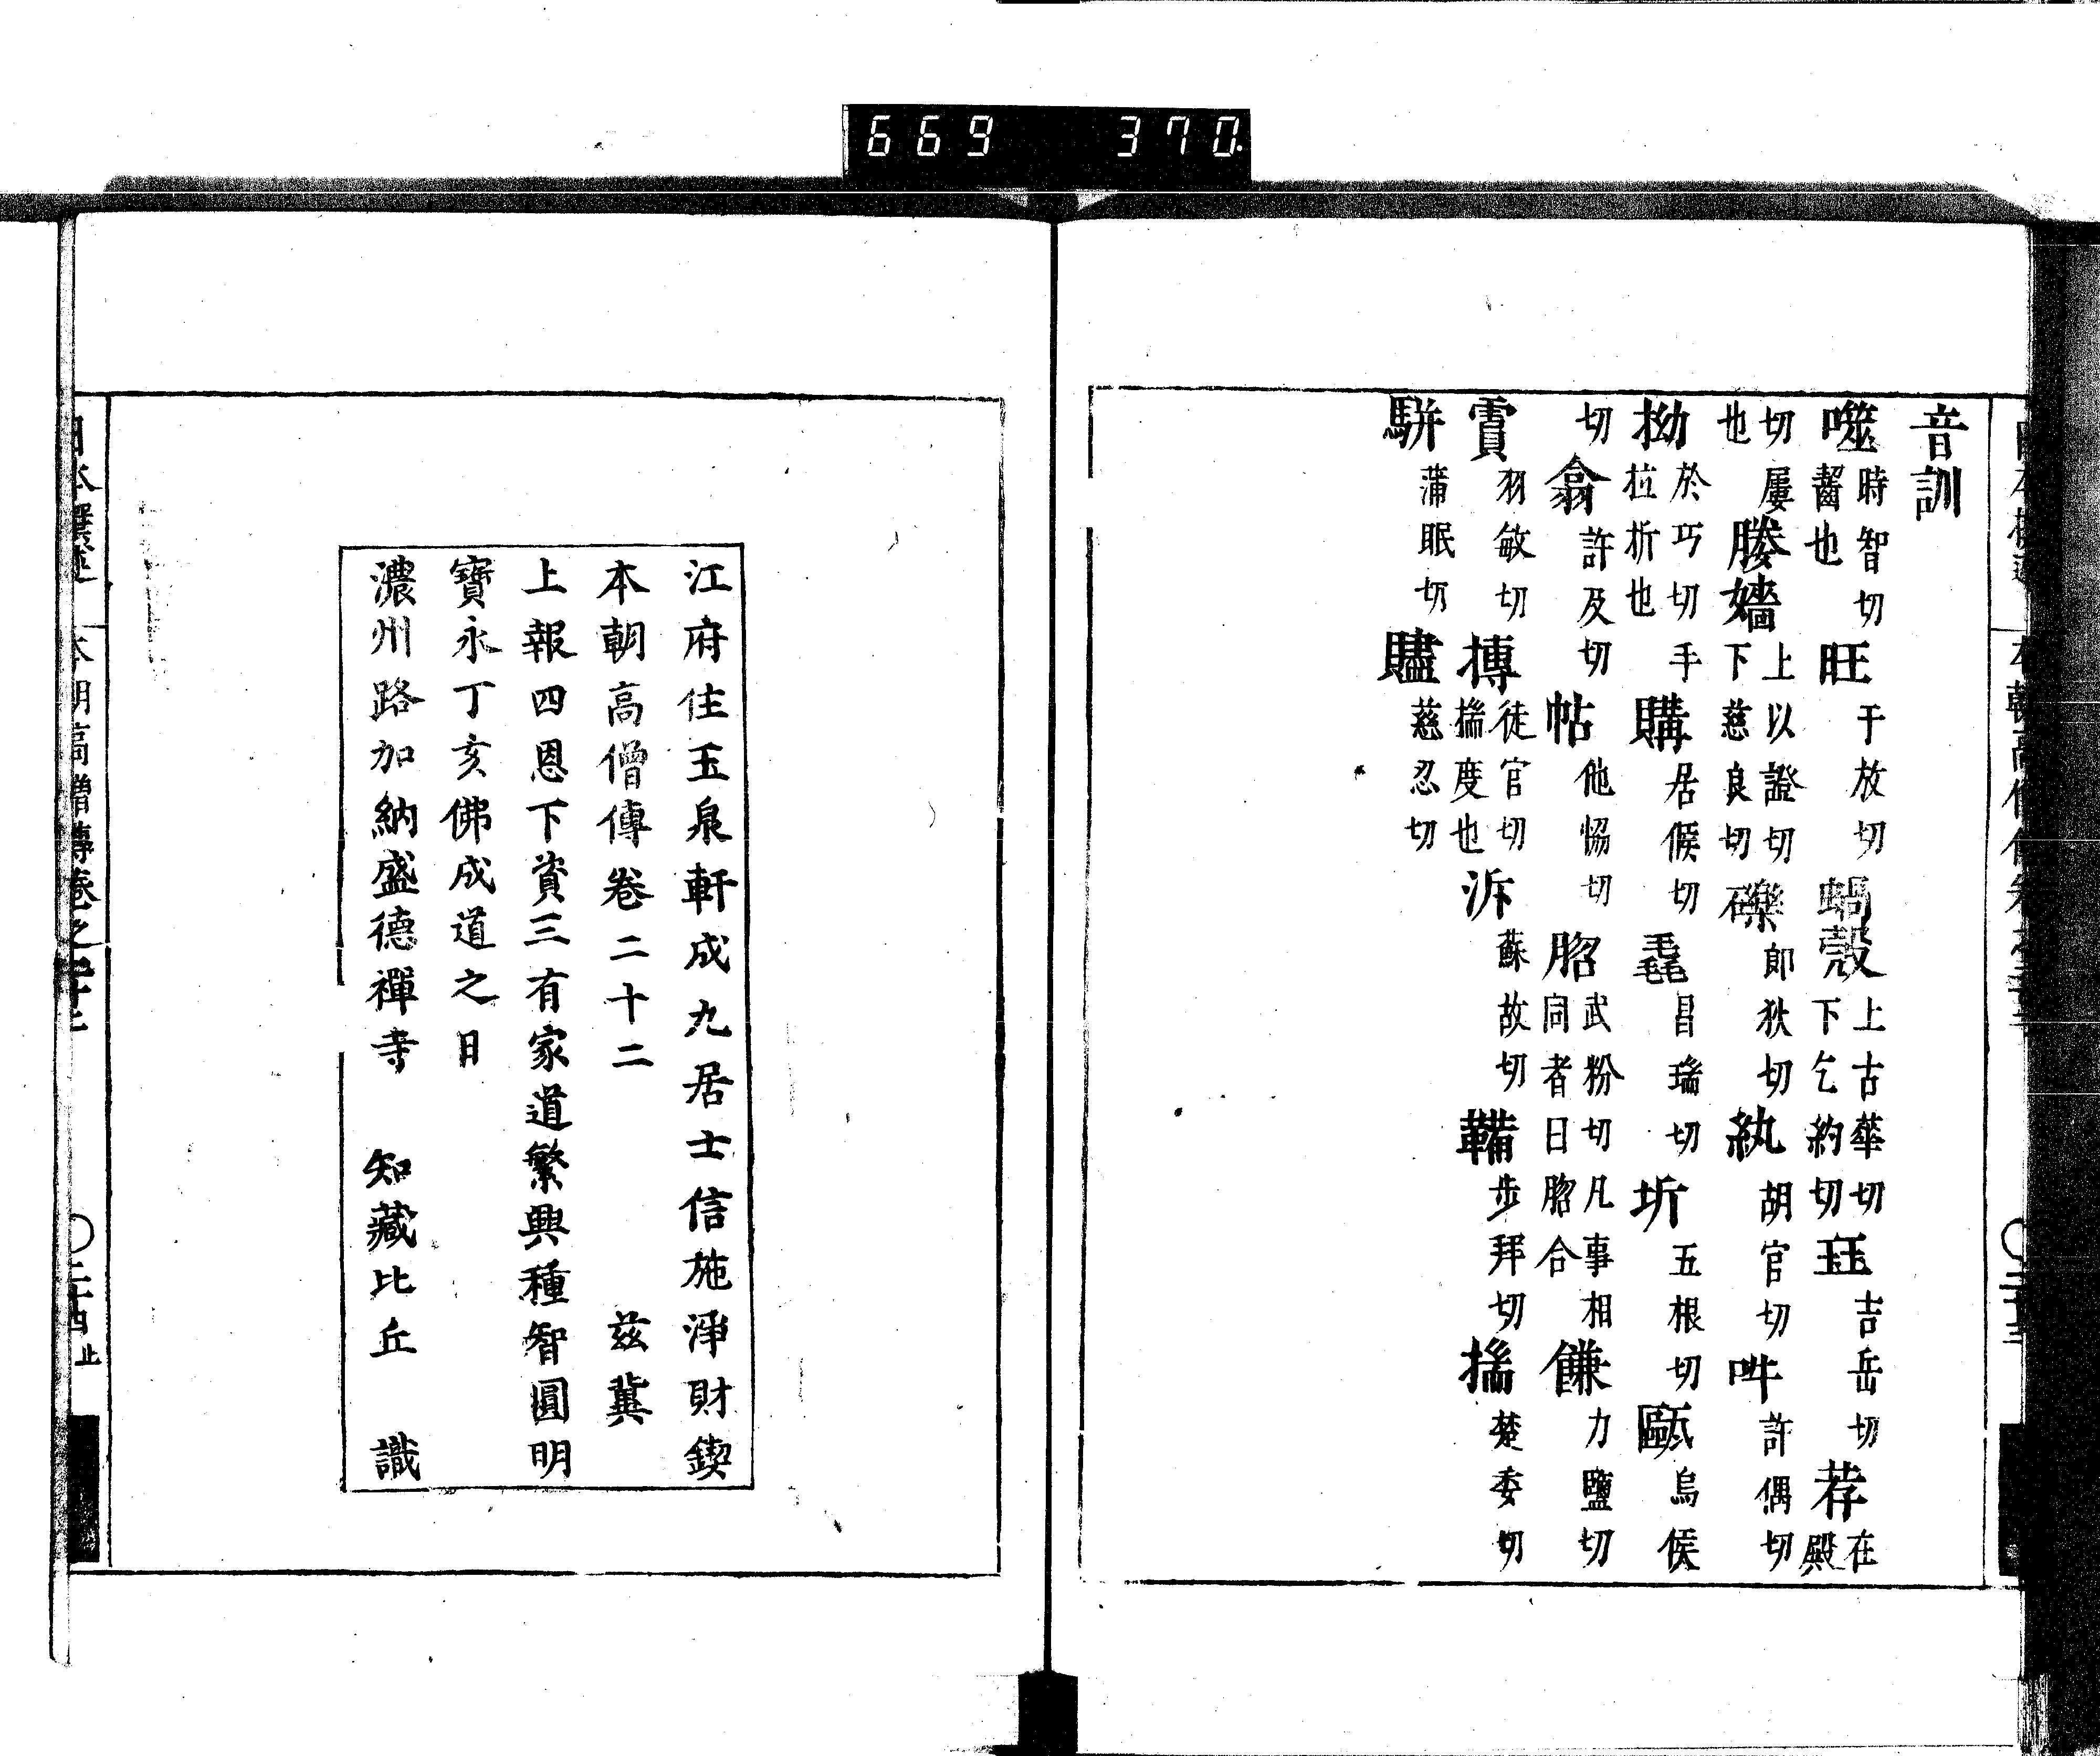 669 370
音訓
噬 時智切齧也 旺 于放切 蝸殼 上古華切下乞約切 珏 吉岳切 荐 在殿
切屢也 媵嬙 上以證切下慈良切 礫 郎狄切 紈 胡官切 吽 許偶切
拗 於巧切手拉折也 購 居候切 毳 昌瑞切 圻 五根切 甌 烏侯
切 翕 許及切 帖 他協切 䏹 武粉切凡事相同者曰䏹合 鎌 力鹽切
霣 羽敏切 摶 徒官切揣度也 泝 蘇故切 鞴 步拜切 揣 楚委切
駢 蒲眠切 贐 慈忍切
江府住玉泉軒成九居士信施淨財鍥
本朝高僧傳卷二十二 茲冀
上報四恩下資三有家道繁興種智圓明
寶永丁亥佛成道之日
濃州路加納盛德禪寺 知藏比丘 識
日本撰述 本朝高僧傳卷之二十二 二十四 止